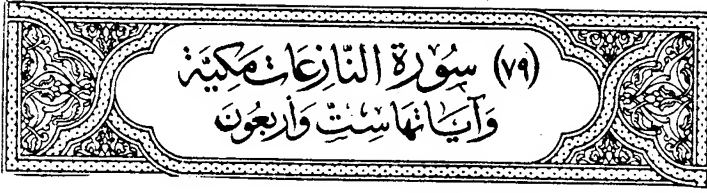 (٧٩) سُوْرَةِ النَّازِعَاتِ مَكِيَّة
وَآيَاتُهَا سِتٌّ وَأَرْبَعُونَ